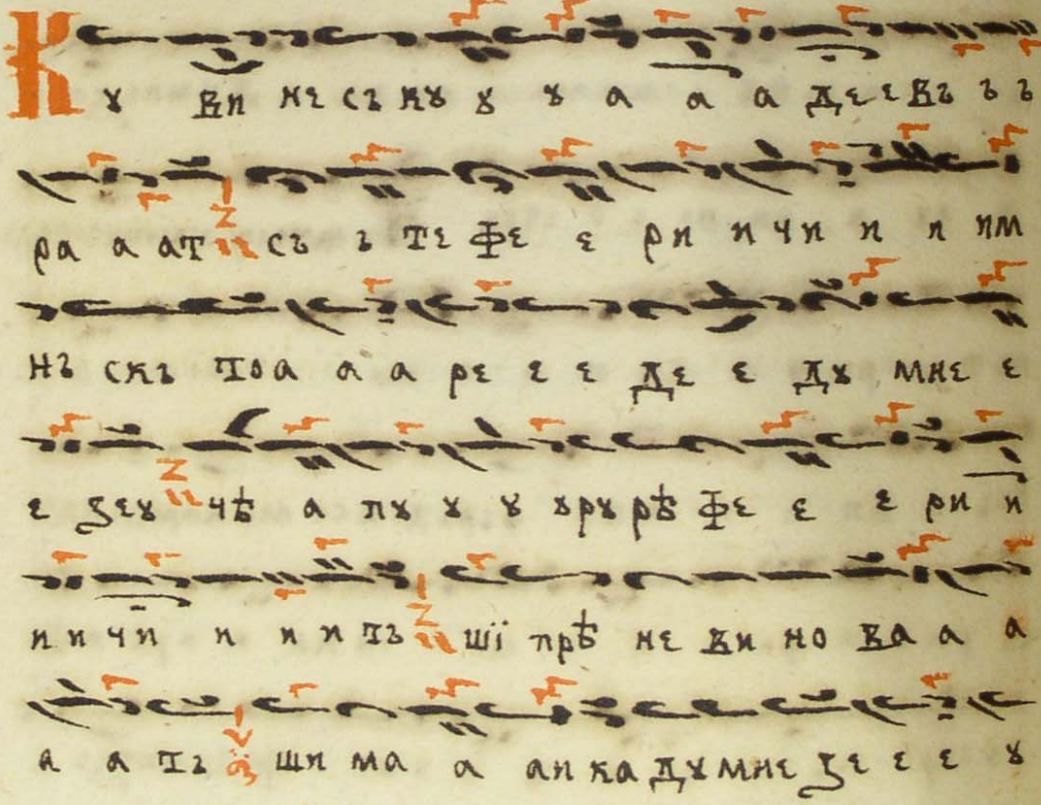 Кꙋ ви не съ кꙋ ꙋ ꙋ а а а де е въ ъ ъ
ра а ат съ ъ те фе е ри и чи и и им
нъ скъ тоа а а ре е е де е дꙋ мне е
е ꙁеꙋ чѣ а пꙋ ꙋ ꙋ ꙋрꙋрѣ фе е е ри и
и и чи и и и тъ шї прѣ не ви но ва а а
а а тъ ши ма а аи ка дꙋмне ꙁе е е ꙋ